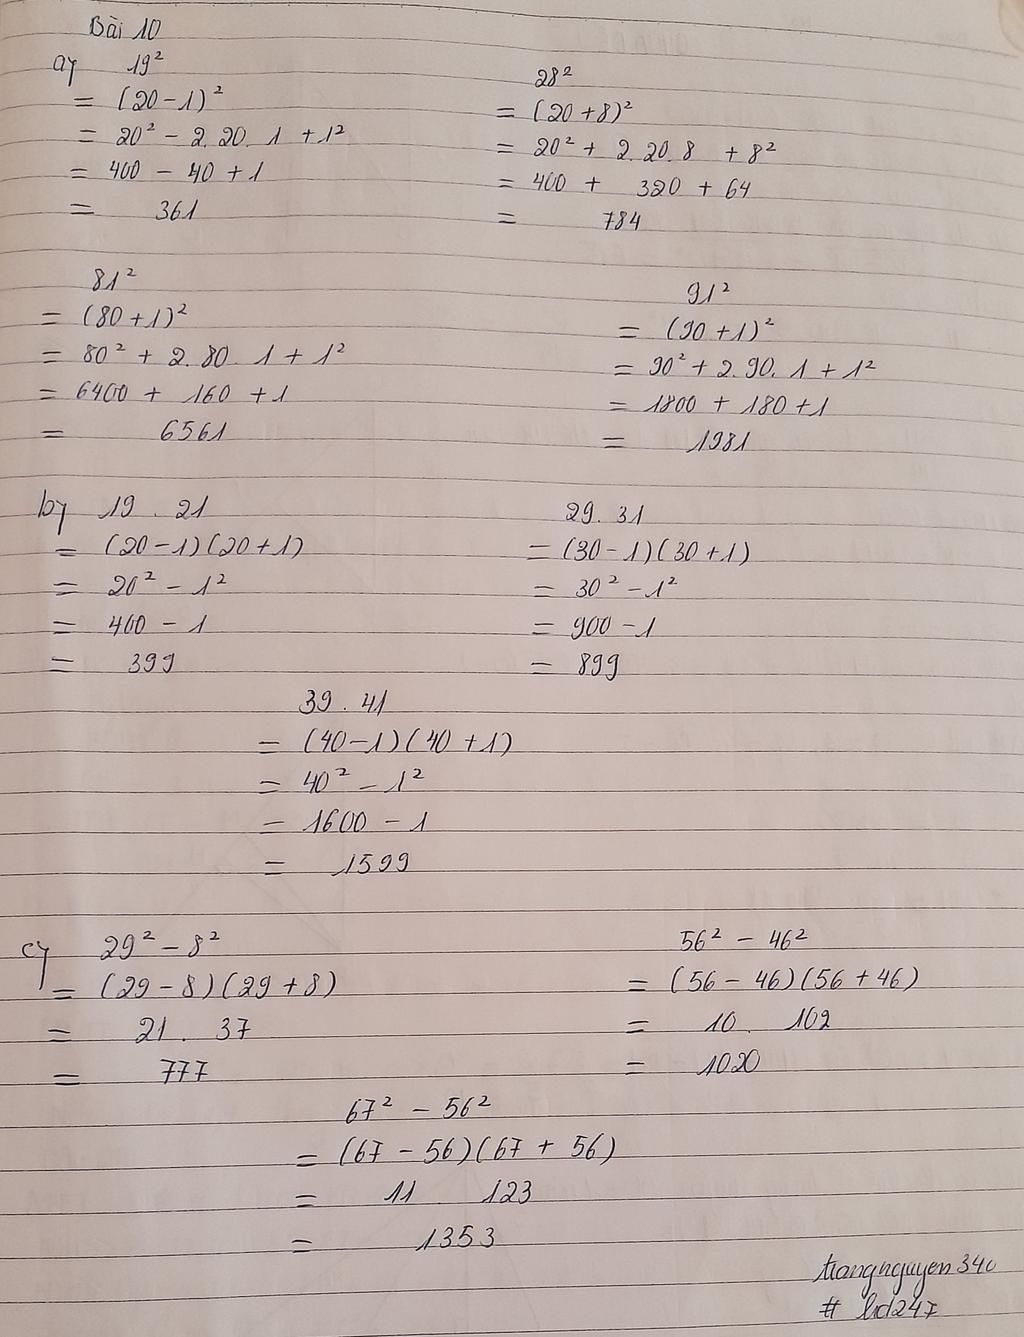 Bài 10
a) 19²
= (20-1)²
= 20² - 2.20.1 + 1²
= 400 - 40 + 1
= 361
28²
= (20+8)²
= 20² + 2.20.8 + 8²
= 400 + 320 + 64
= 784
81²
= (80+1)²
= 80² + 2.80.1 + 1²
= 6400 + 160 + 1
= 6561
91²
= (90+1)²
= 90² + 2.90.1 + 1²
= 1800 + 180 + 1
= 1981
b) 19 . 21
= (20-1)(20+1)
= 20² - 1²
= 400 - 1
= 399
29.31
= (30-1)(30+1)
= 30² - 1²
= 900 - 1
= 899
39.41
= (40-1)(40+1)
= 40² - 1²
= 1600 - 1
= 1599
c) 29² - 8²
= (29-8)(29+8)
= 21 . 37
= 777
56² - 46²
= (56-46)(56+46)
= 10 . 102
= 1020
67² - 56²
= (67-56)(67+56)
= 11 123
= 1353
trangnguyen340
# hd247